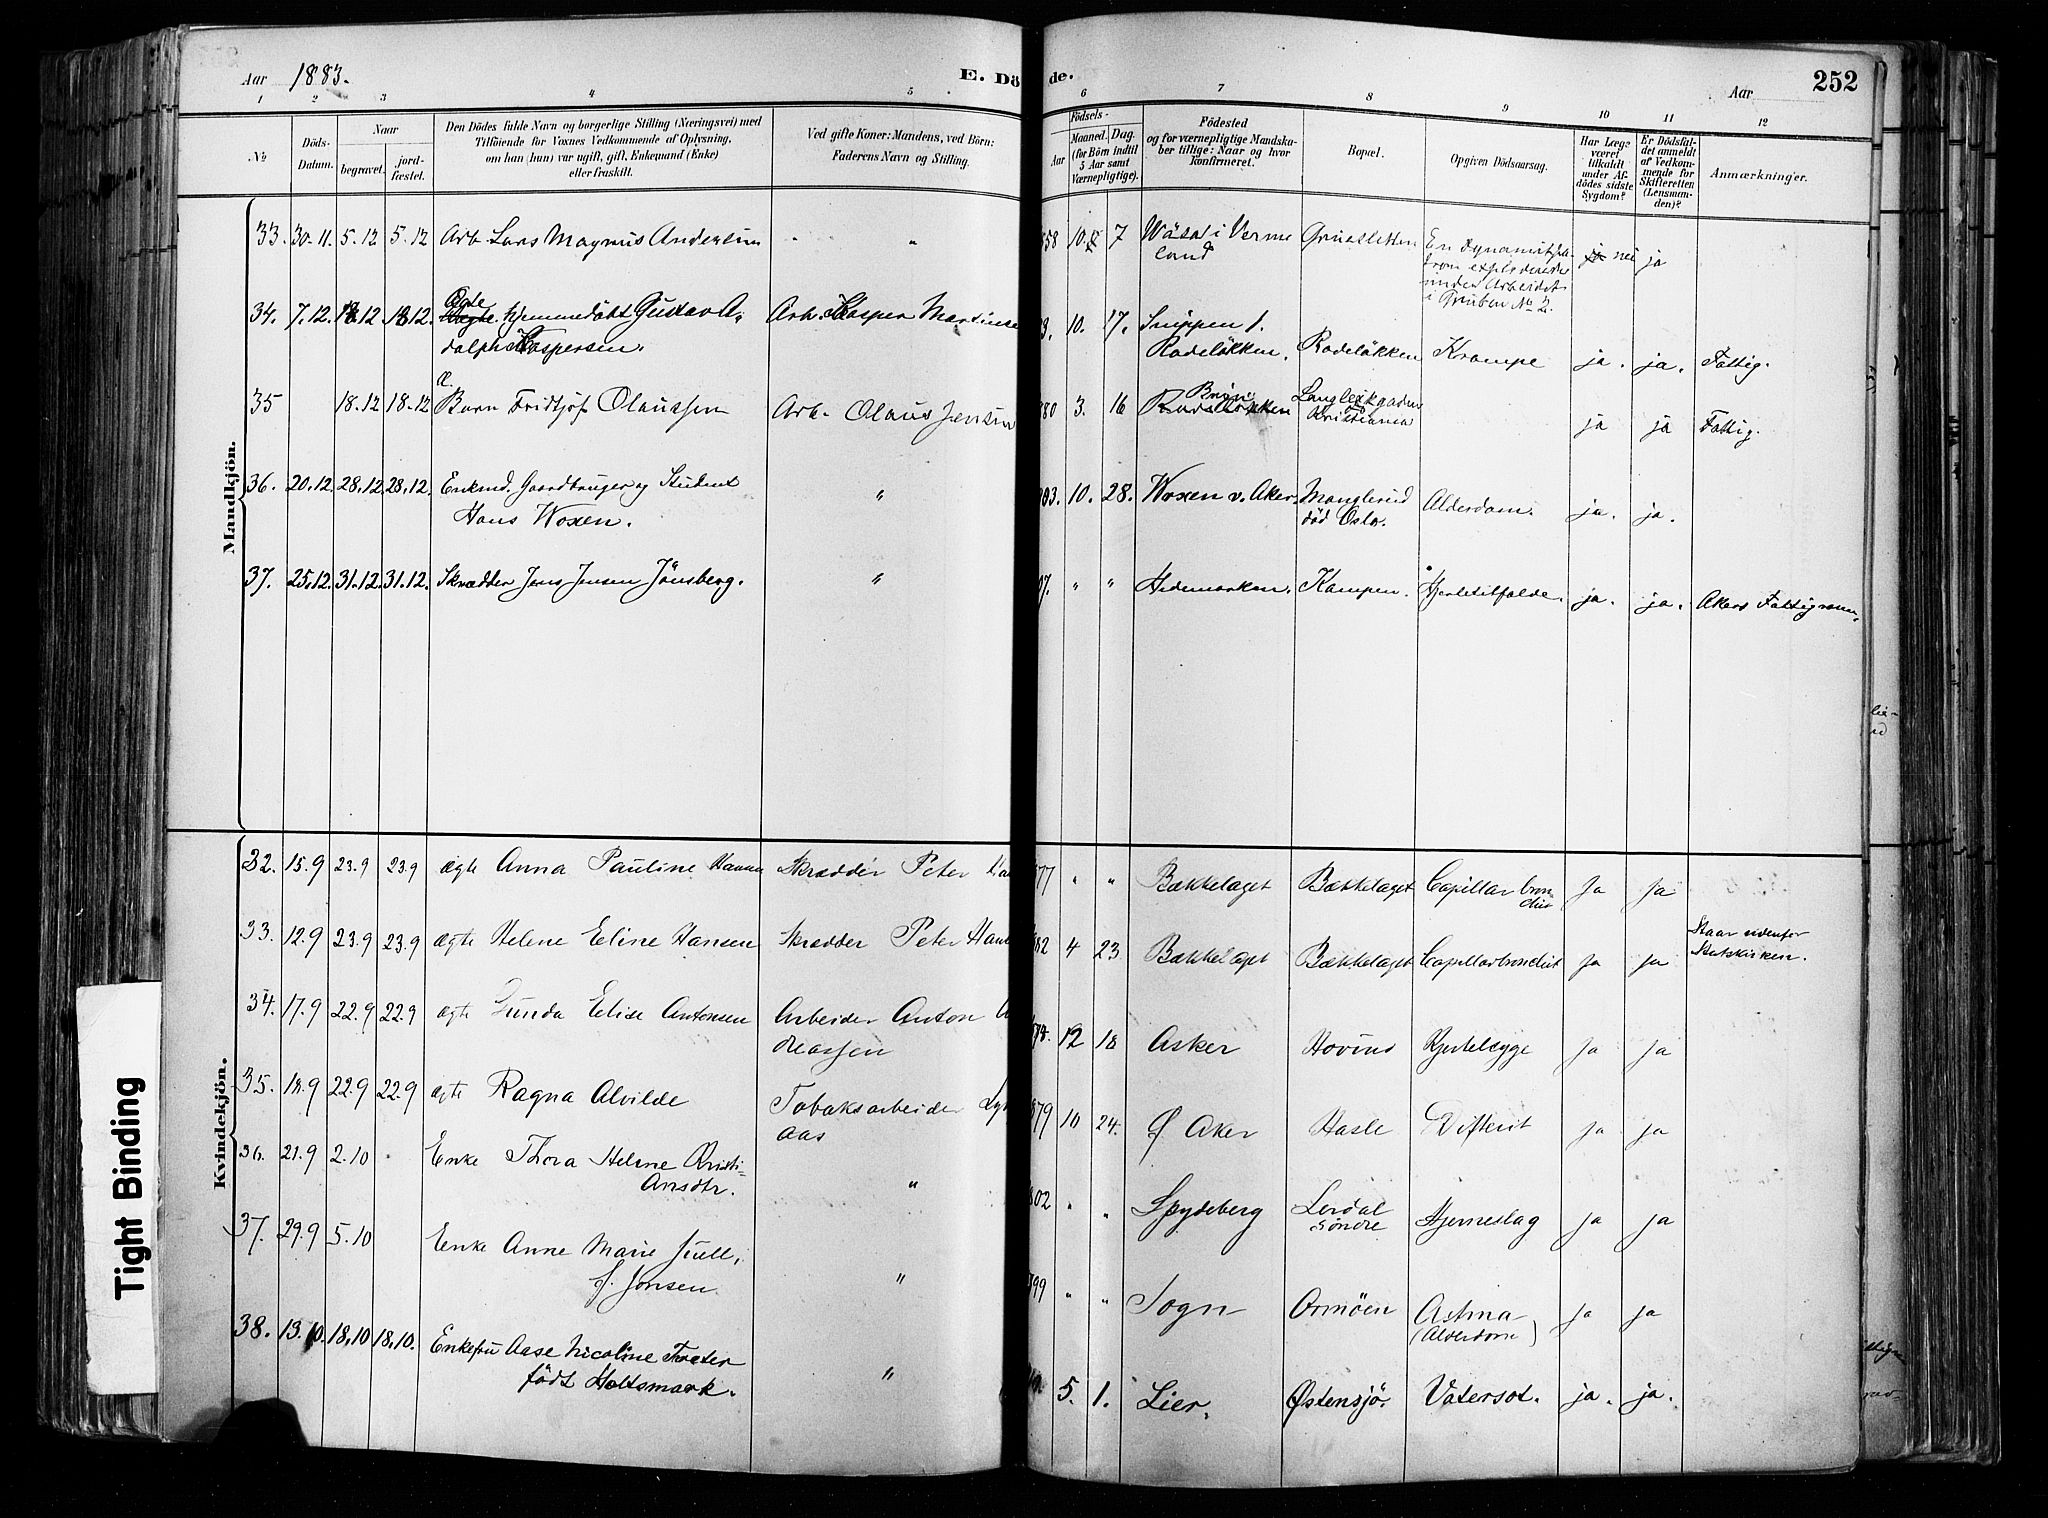 Aar 1883.
E. Dö de.
Aar
252
1 2 3 4 5 6 7 8 9 10 11 12
№
Döds-Datum.
Naar
begravet.
jord-fæstet.
Den Dödes fulde Navn og borgerlige Stilling (Næringsvei) med
Tilföiende for Voxnes Vedkommende af Oplysning,
om han (hun) var ugift, gift, Enkemand (Enke)
eller fraskilt.
Ved gifte Koner: Mandens, ved Börn:
Faderens Navn og Stilling.
Födsels-
Aar
Maaned. Dag.
(for Börn indtil
5 Aar samt
Værnepligtige).
Födested
og for værnepligtige Mandska-
ber tillige: Naar og hvor
konfirmeret.
Bopæl.
Opgiven Dödsaarsag.
Har Læge
været
tilkaldt
under Af-
dødes sidste
Sygdom?
Er Dödsfal-
det anmeldt
af Vedkom-
mende for
Skifteretten
(Lensman-
den)?
Anmærkninger.
Mandkjön.
33. 30.11. 5.12 5.12 Arb. Lars Magnus Andersen " 858 10. 7 Wäse i Verme Gruesletten En Dynamitpa- ja nei ja
land tron exploderede
under Arbeidet
i Gruben No 2.
34. 7.12. 18.12 18.12. Ægte hjemmedöbt Gustav A- Arb. Kasper Martinse 3. 10. 17. Snippen v.
dolph Kaspersen. Rodeløkken. Rodeløkken Krampe ja. ja. Fattig.
35 18.12 18.12 Æ. Barn Fridtjof Olaussen Arb. Olaus Jensen 880 3. 16 Rodeløkken Langleikgaden
Kristiania ja ja Fattig.
36. 20.12. 28.12. 28.12. Enkmd. Gaardbruger og Student " 803. 10. 28. Woxen v. Aker. Manglerud Alderdom. ja. ja.
Hans Woxen. död Oslo.
37. 25.12. 31.12. 31.12. Skrædder Jens Jensen Jönsberg. " 07. " " Hedemarken. Kampen. Hjertetilfælde. ja. ja. Akers Fattigvæsen.
Kvindekjön.
32. 15.9 23.9 23.9 ægte Anna Pauline Hansen Skrædder Peter Ha 77 " " Bækkelaget Bækkelaget Capillar bron Ja Ja
chit
33. 12.9 23.9 23.9 ægte Helene Eline Hansen Skrædder Peter Hans 82 4 23 Bækkelaget Bækkelaget Capillarbronchit Ja Ja Staar udenfor
Statskirken.
34. 17.9 22.9 22.9 ægte Gunda Elise Antonsen Arbeider Anton A 78. 12 18 Asker Hovind Hjertelyge Ja Ja
dreassen
35. 18.9 22.9 22.9 ægte Ragna Alvilde Tobaksarbeider 879 10 24. Ø Aker Hasle Difterit Ja Ja
Aas
36. 21.9 2.10 Enke Thora Helene Kristi- " 802 " " Spydeberg Lerdal Hjerneslag ja ja
ansdtr. söndre
37. 29.9 5.10 Enke Anne Marie Juell, " 799 " " Sogn Ormöen Astma ja ja
f. Jonsen (Alderdom)
38. 13.10. 18.10 18.10. Enkefru Aase Nicoline Træter " 5. 1. Lier. Østensjö. Vatersot. ja. ja.
födt Holtsmark.
Tight Binding